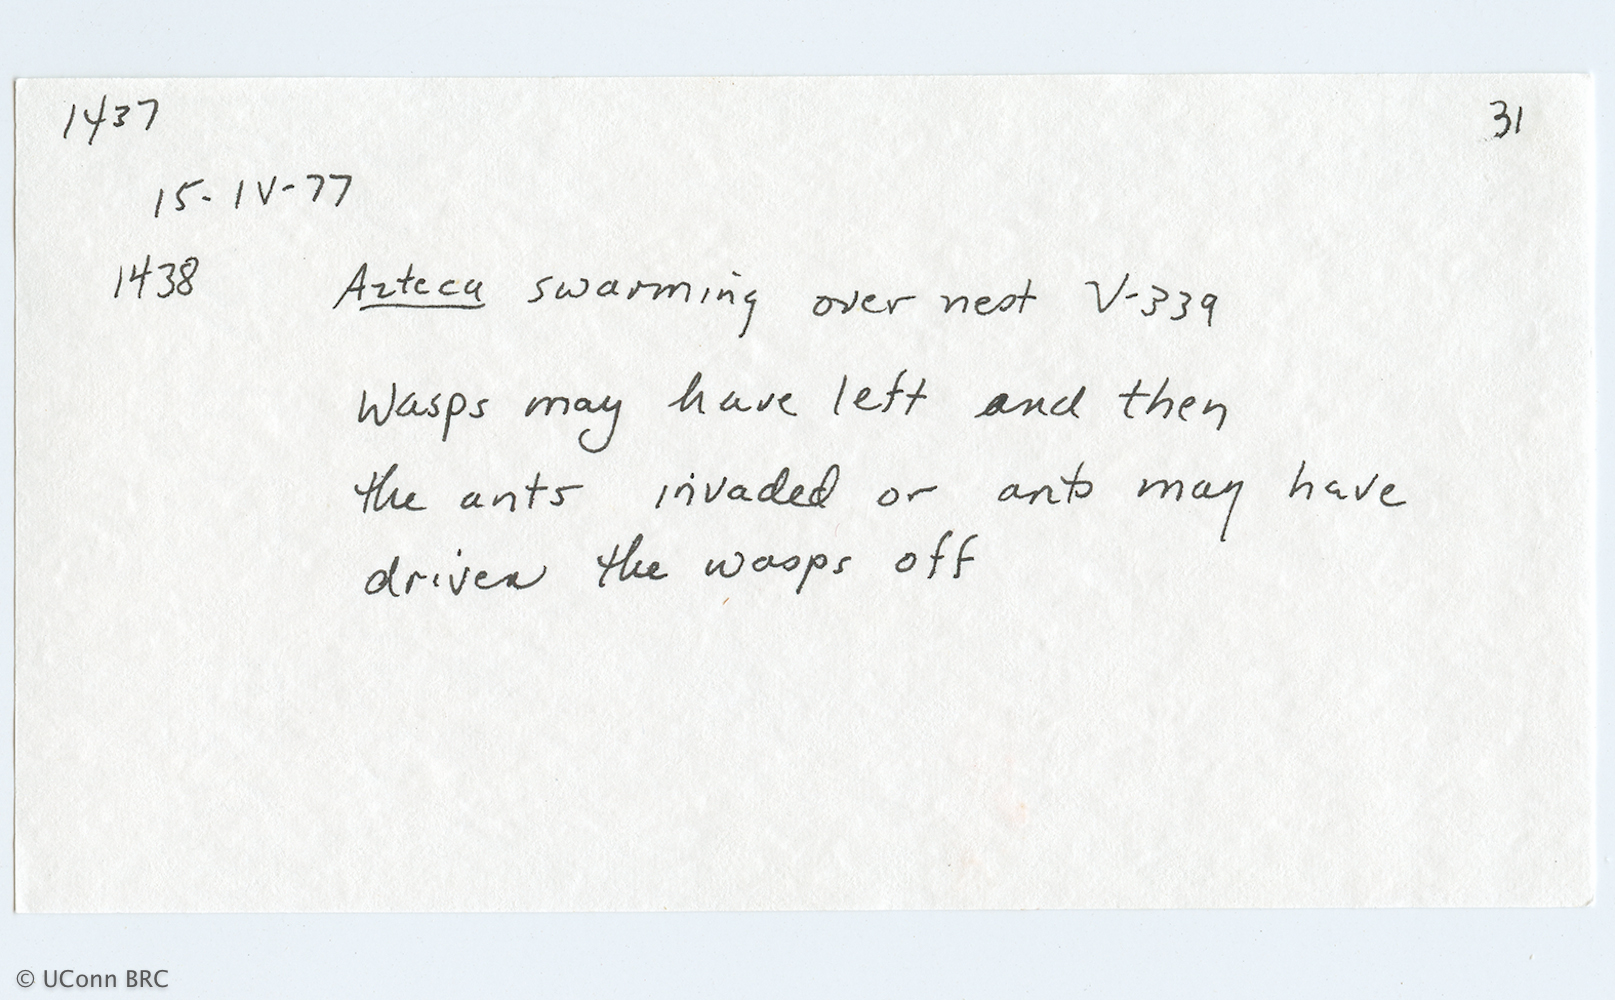 1437
31
15-IV-77
1438 Azteca swarming over nest V-339
Wasps may have left and then
the ants invaded or ants may have
driven the wasps off
© UConn BRC